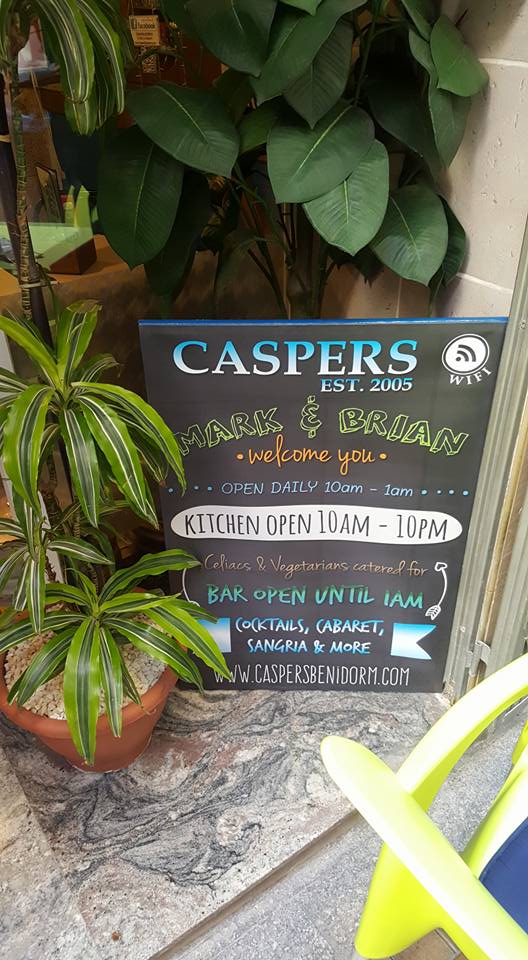 facebook
CASPERS
EST. 2005
WIFI
MARK & BRIAN
• welcome you •
• • • • OPEN DAILY 10am - 1am • • • •
KITCHEN OPEN 10AM - 10PM
Celiacs & Vegetarians catered for
BAR OPEN UNTIL 1AM
COCKTAILS, CABARET,
SANGRIA & MORE
WWW.CASPERSBENIDORM.COM